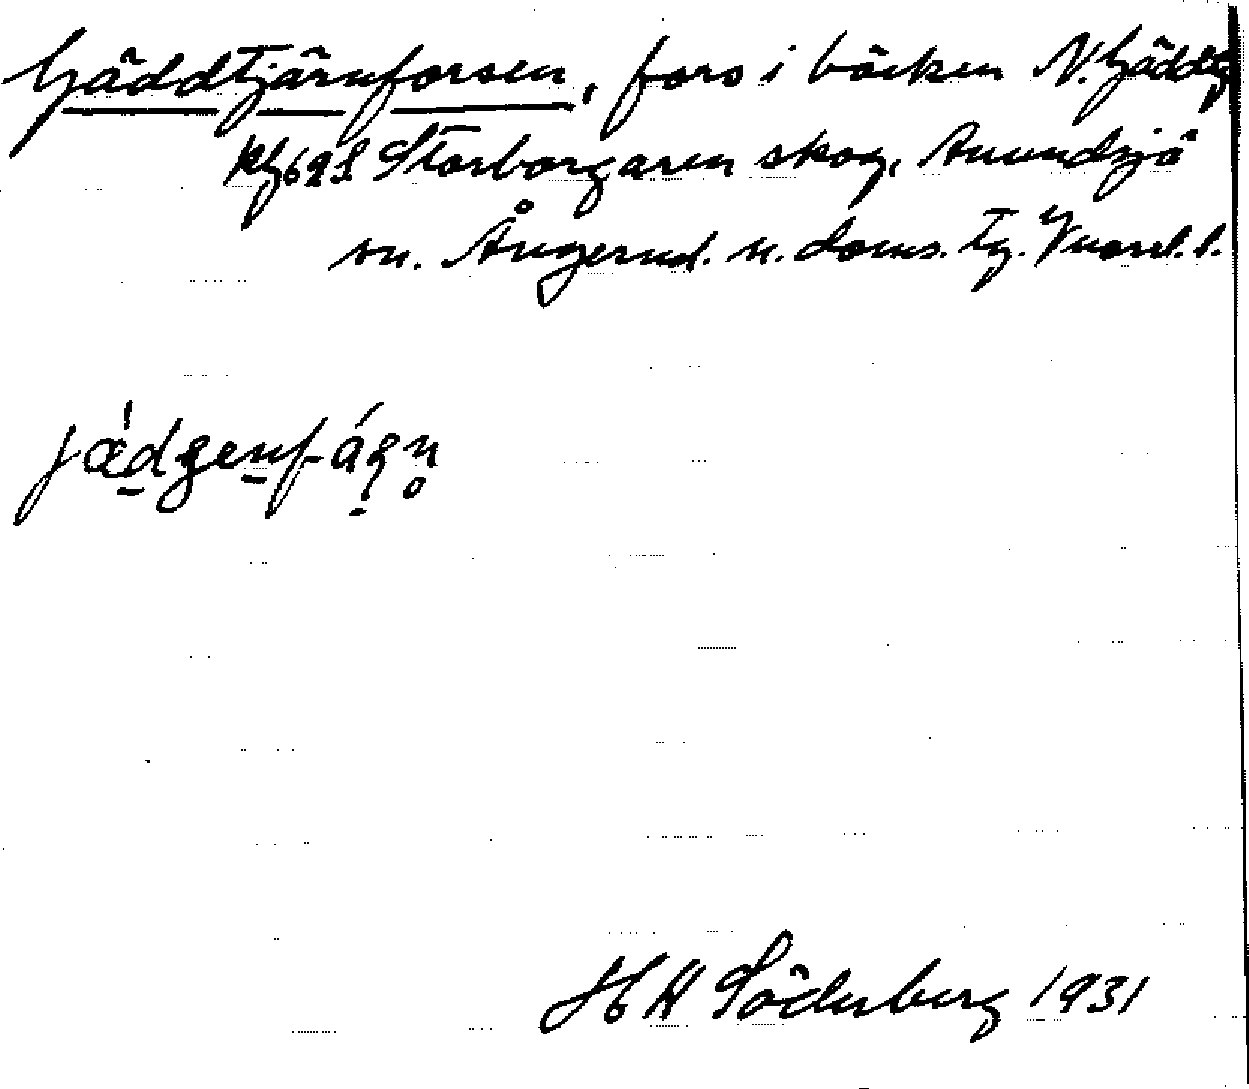 Gäddtjärnforsen, fors i bäcken N. Gäddtj
Storborgaren skog, Anundsjö
sn. Ångerml. n. doms. tg.
jädgenfágn
H H Söderberg 1931